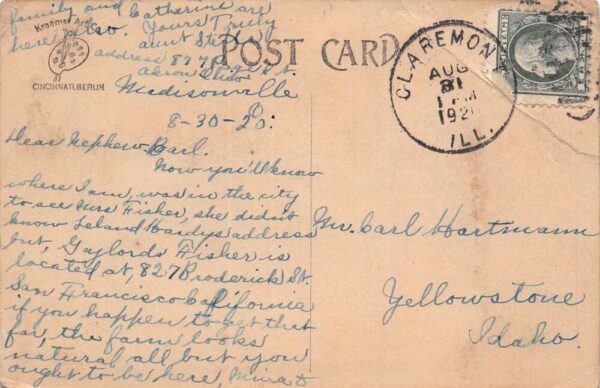 family and Catherine are
here also. Yours Truly
aunt
address 877
Akron Ohio
Madisonville
O.
8-30-20.
Dear Nephew Carl.
Now you'll know
where I am, was in the city
to see Mrs Fisher, she didn't
know Leland Hardys address
but, Gaylords Fisher is
located at, 827 Broderick St.
San Francisco California
if you happen to get that
far, the farm looks
natural all but you
ought to be here, Mina &
Kraemer Art
CINCINNATI, BERLIN
POST CARD
CLAREMONT
AUG
31
1 PM
1920
ILL.
Mr. Carl Hartmann
Yellowstone
Idaho.